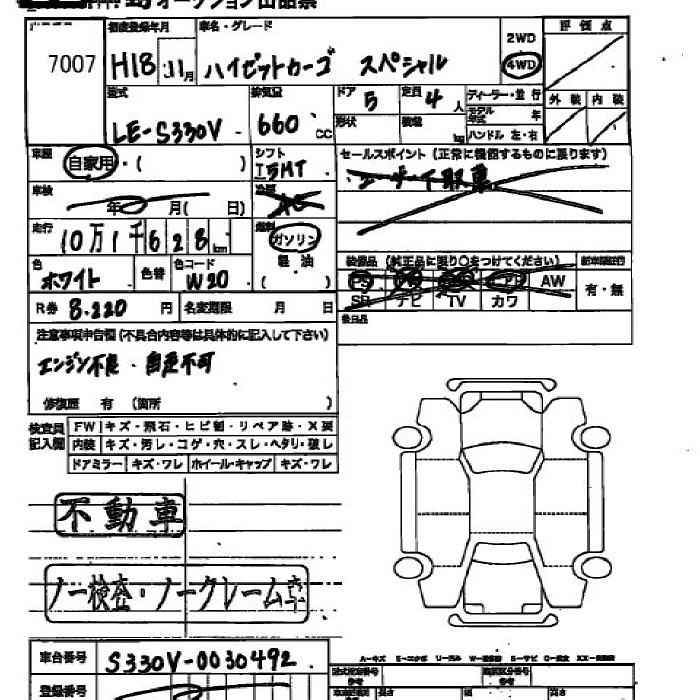 オークション出品票
7007
初度登録年月 車名・グレード
H18 11月 ハイゼットカーゴ スペシャル
2WD
4WD
評価点
外装 内装
型式 排気量 ドア 定員 ディーラー・並行
LE-S330V 660 CC 5 4人
形状 積載 kg
モデル年式 年
ハンドル 左・右
車歴 自家用・( )
シフト I5MT
セールスポイント(正常に機能するものに限ります)
ユーザー下取車
車検 年 月( 日)
冷房 AC
走行 10万1千628km
燃料 ガソリン
軽油
( )
色 ホワイト 色替 色コード W20
装備品(純正品に限り○をつけてください)
PS AW
SR ナビ TV カワ
有・無
R券 8.220円 名変期限 月 日
後日品
注意事項申告欄(不具合内容等は具体的に記入して下さい)
エンジン不良・自走不可
修復歴 有(箇所 )
検査員記入欄
FW キズ・飛石・ヒビ割・リペア跡・X要
内装 キズ・汚レ・コゲ・穴・スレ・ヘタリ・破レ
ドアミラー キズ・ワレ ホイール・キャップ キズ・ワレ
不動車
ノー検査・ノークレーム車
車台番号 S330V-0030492
登録番号
長さ 幅 高さ